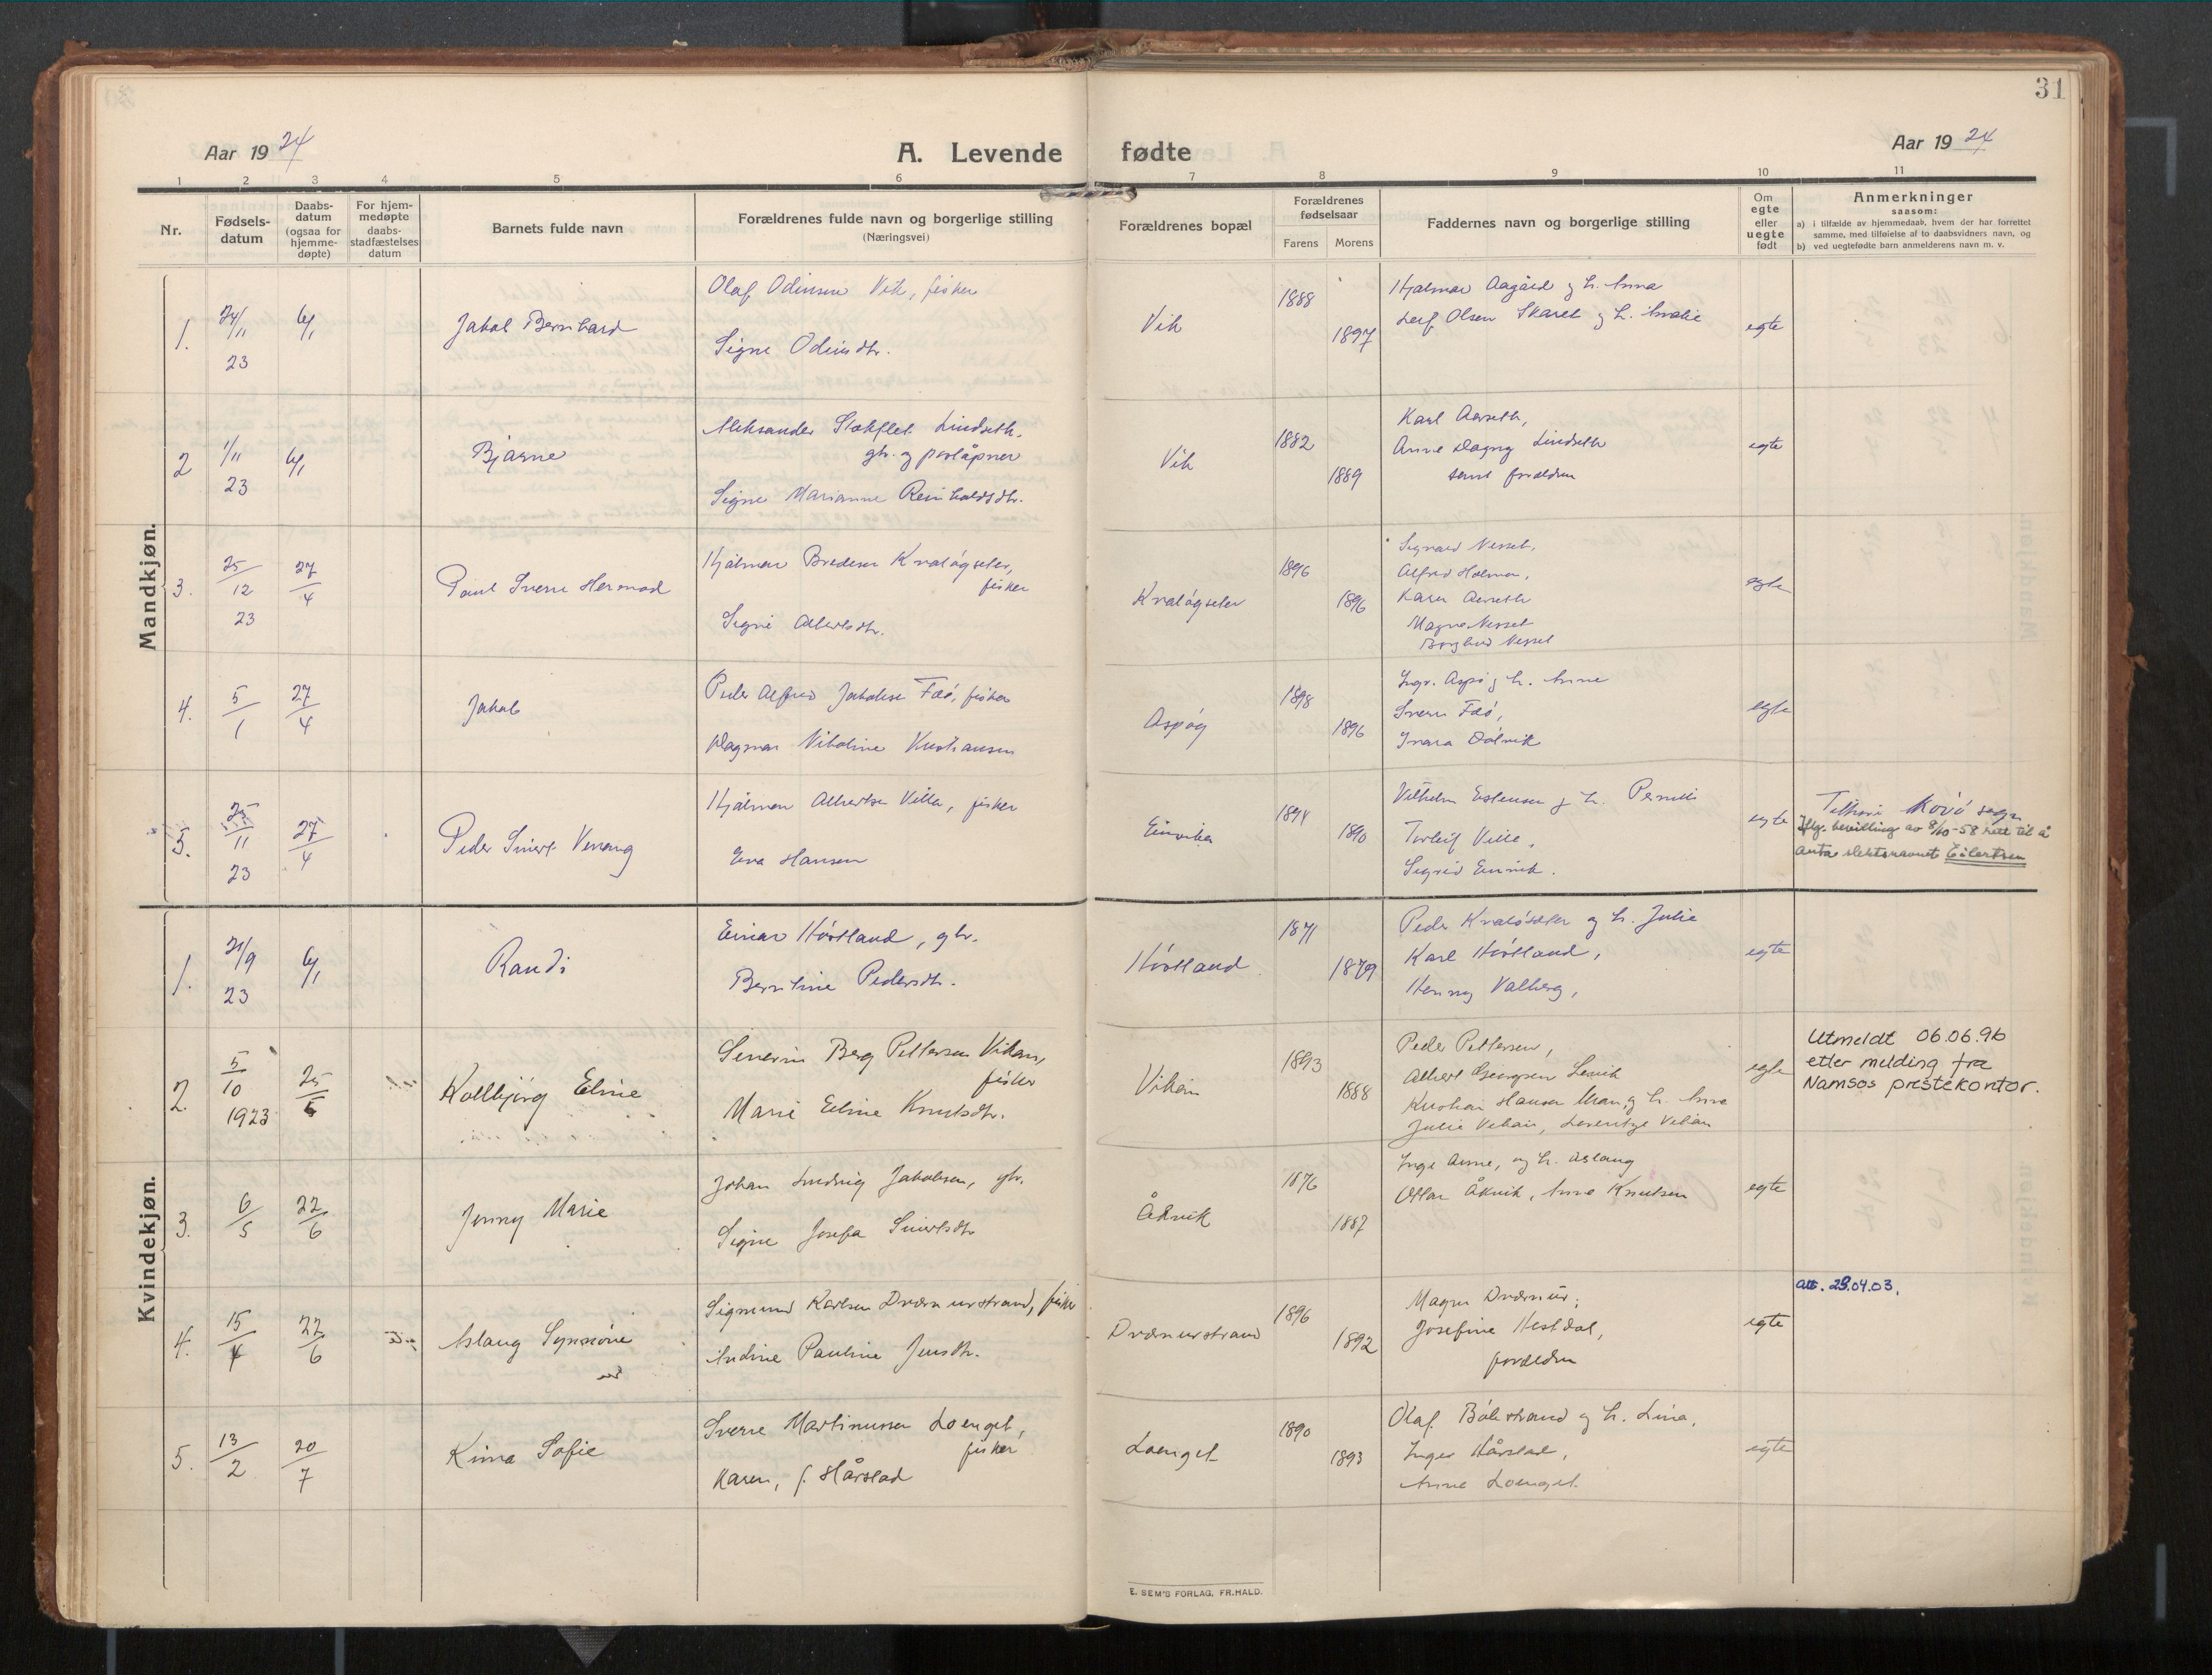 31
Aar 1924
A. Levende fødte
Aar 1924
1 2 3 4 5 6 7 8 9 10 11
Nr.
Fødsels-
datum
Daabs-
datum
(ogsaa for
hjemme-
døpte)
For hjem-
medøpte
daabs-
stadfæstelses
datum
Barnets fulde navn
Forældrenes fulde navn og borgerlige stilling
(Næringsvei)
Forældrenes bopæl
Forældrenes
fødselsaar
Farens Morens
Faddernes navn og borgerlige stilling
Om
egte
eller
uegte
født
Anmerkninger
saasom:
a) i tilfælde av hjemmedaab, hvem der har forrettet
samme, med tilføielse af to daabsvidners navn, og
b) ved uegtefødte barn anmelderens navn m. v.
Mandkjøn.
1. 24/11 23 6/1 Jakob Bernhard
Olaf Odinsen Vik, fisker
Signe Odinsdtr.
Vik 1888 1897
Hjalmar Aagård og h. Anna
Leif Olsen Skaret og h. Amalie
egte
2 1/11 23 6/1 Bjarne
Aleksander Stokflet Lindseth,
gbr. og poståpner
Signe Marianne Reinholdsdtr.
Vik 1882 1889
Karl Aarseth,
Anne Dagny Lindseth
samt forældrene
egte
3. 25/12 23 27/4 Paul Sverre Hermod
Hjalmar Bredesen Kvaløyseter,
fisker
Signe Albertsdtr.
Kvaløyseter 1896 1896
Sigvard Nesset,
Alfred Holmen,
Karen Aarseth
Magna Nesset
Borghild Nesset
egte
4. 5/1 27/4 Jakob
Peder Alfred Jakobsen Faø, fisker
Dagmar Nikoline Kristiansen
Aspøy 1898 1896
Ingv. Aspø og h. Anne
Sverre Faø,
egte
5. 25/11 23 27/4 Peder Sivert Venøng
Hjalmar Albertsen Villa, fisker
Eva Hansen
Einvika 1894 1890
Vilhelm Estensen og h. Pernille
Torleif Villa,
Sigrid Einvik.
egte
Iflg. bevilling av 8/10-58 rett til å
anta slektsnavnet Eilertsen
Kvindekjøn.
1. 21/9 23 6/1 Randi
Einar Høstland, gbr.
Berntine Pedersdtr.
Høstland 1871 1879
Peder Kvaløseter og h. Julie
Karl Høstland,
Henny Valberg,
egte
2. 5/10 1923 25/5 Kolbjørg Eline
Severin Berg Pettersen Vikan,
fisker
Marie Eline Knutsdtr.
Vikan 1893 1888
Peder Pettersen,
Albert Georgsen Lervik
Kristian Hansen Utran, og h. Anna
Julie Vikan, Laurentze Vikan
egte
Utmeldt 06.06.96
etter melding fra
Namsos prestekontor.
3. 6/5 22/6 Jenny Marie
Johan Ludvig Jakobsen, gbr.
Signe Josefa Sivertsdtr
Åkvik 1876 1887
Inge Aune, og h. Aslaug
Ottar Åkvik, Anna Knutsen
egte
4. 15/4 22/6 Aslaug Synnøve
Sigmund Karlsen Dværnurstrand, fisker
Andine Pauline Jensdtr.
Dværnurstrand 1896 1892
Magne Dværnur,
Josefine Hestdal,
forældrene
egte
att. 29.04.03.
5. 13/2 20/7 Kima Sofie
Sverre Martinussen Loenget,
fisker
Karen, f. Hårstad
Loenget 1890 1893
Olaf Bølestrand og h. Lina,
Inger Hårstad,
Anna Loenget.
egte
E. SEM'S FORLAG, FR.HALD.